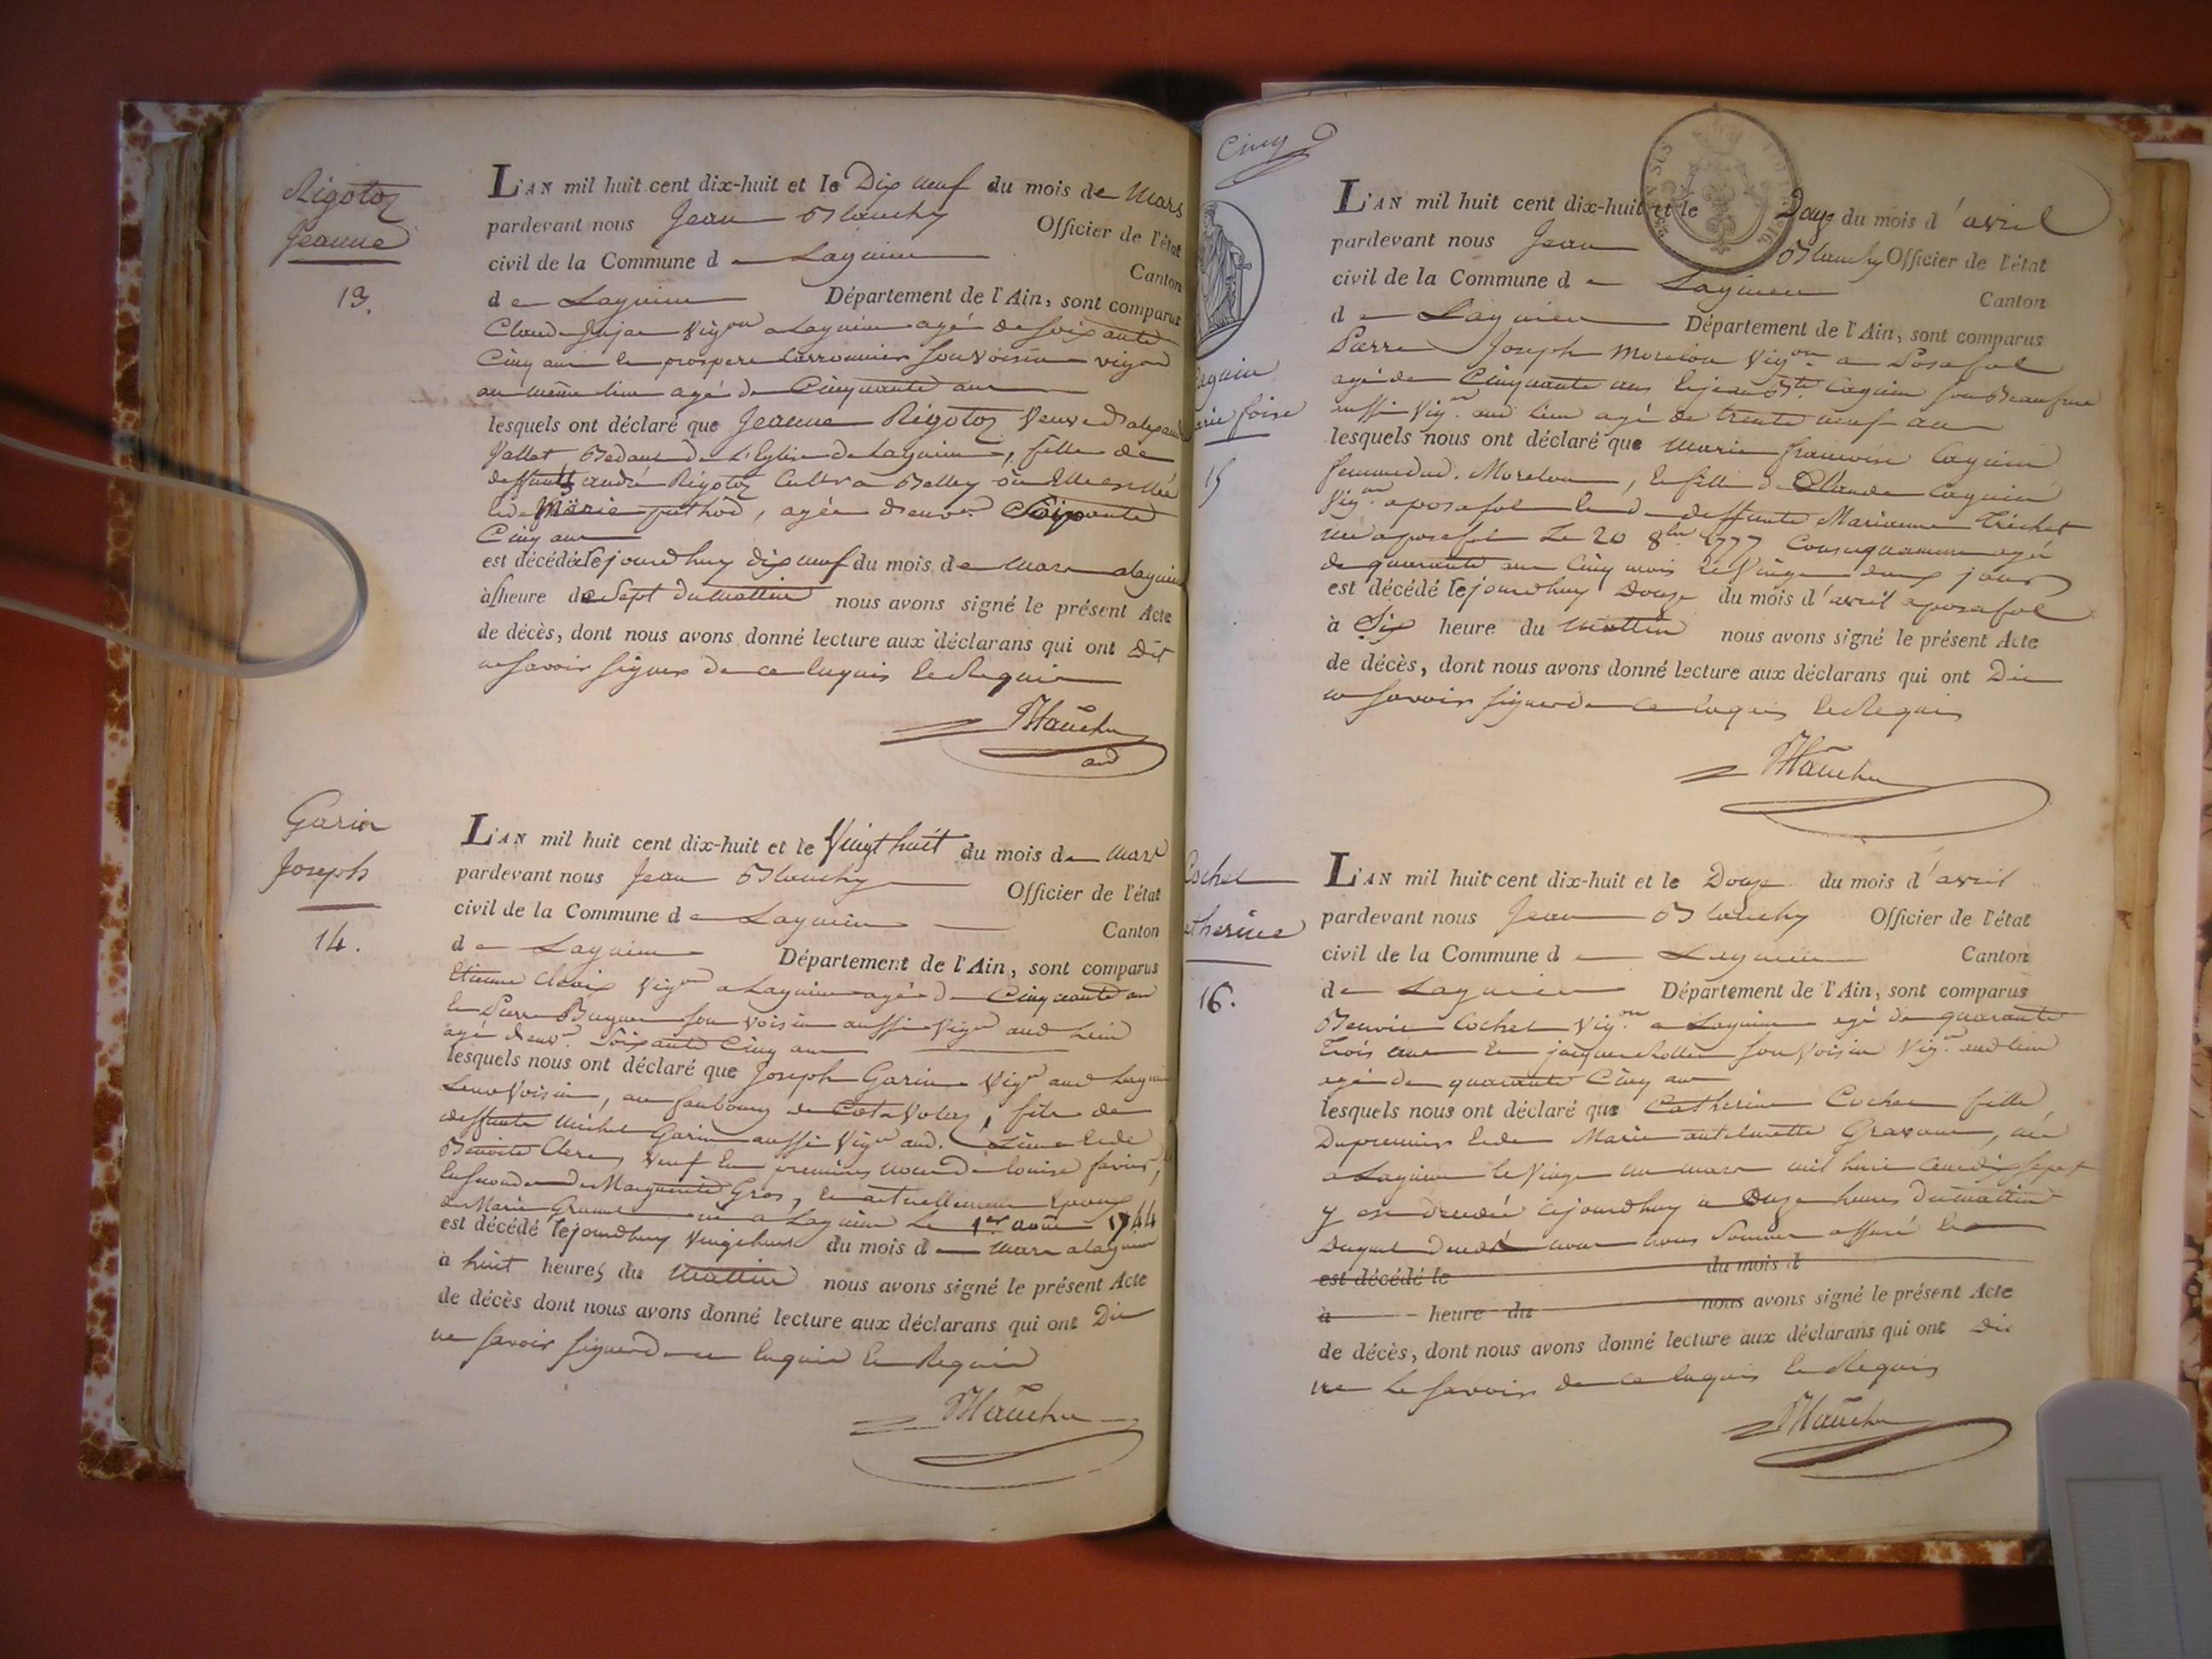 Rigotoz
Jeanne
13.
L'AN mil huit cent dix-huit et le Dix neuf du mois de Mars
pardevant nous Jean Blanchy Officier de l'état
civil de la Commune d e Lagnieu Canton
d e Lagnieu Département de l'Ain, sont comparus
Claude Vigon a Lagnieu agé de soixante
Cinq ans et prospere son voisin vigon
au même lieu agé de Cinquante ans
lesquels ont déclaré que Jeanne Rigotoz Veuve
Vallet Bedaud de L'Eglise de Lagnieu, fille de
deffunts andré Rigotoz Cultr a Belley où Elle est Née
et de Marie puthod, agée d'env. Soixante
Cinq ans
est décédée le jourdhuy dix neuf du mois d e mars a lagnieu
à l'heure de Sept du mattin nous avons signé le présent Acte
de décès, dont nous avons donné lecture aux déclarans qui ont Dit
ne savoir signer de ce enquis et Requis
Blanchy
Garin
Joseph
14.
L'AN mil huit cent dix-huit et le Vingt huit du mois d e mars
pardevant nous Jean Blanchy Officier de l'état
civil de la Commune d e Lagnieu Canton
d e Lagnieu Département de l'Ain, sont comparus
Etienne Vigon a Lagnieu agé de Cinquante ans
et Pierre Buguet son voisin aussi Vigon aud Lieu
agé d'env. Soixante Cinq ans
lesquels nous ont déclaré que Joseph Garin Vigon aud Lagnieu
Leur Voisin, au faubourg de, fils de
deffunts Michel Garin aussi Vigon aud. et de
Benoite Clerc, Veuf en premières noces de louise favier,
en secondes de Marguerite Gros, et actuellement Epoux
de Marie né a Lagnieu Le 1er août 1744
est décédé le jourdhuy Vingt huit du mois d e mars a lagnieu
à huit heures du Mattin nous avons signé le présent Acte
de décès dont nous avons donné lecture aux déclarans qui ont Dit
ne savoir signer de ce enquis et Requis
Blanchy
Cinq
Marie foise
15
L'AN mil huit cent dix-huit et le Douze du mois d'avril
pardevant nous Jean Blanchy Officier de l'état
civil de la Commune d e Lagnieu Canton
d e Lagnieu Département de l'Ain, sont comparus
Pierre Joseph Morelon Vigon a Posafol
agé de Cinquante ans et jean Bte Caguin son Beaufrere
aussi Vign aud Lieu agé de trente neuf ans
lesquels nous ont déclaré que Marie françoise Caguin
femme dud. Morelon, et fille de Claude Caguin
Vign a posafol et de deffunte Marianne Trichet
née a posafol Le 20 8bre 1777 Consequamment agée
de quarante ans Cinq mois et Vingt deux jours
est décédé le jourdhuy Douze du mois d'avril a posafol
à Six heure du Mattin nous avons signé le présent Acte
de décès, dont nous avons donné lecture aux déclarans qui ont Dit
ne savoir signer de ce enquis et Requis
Blanchy
Cochet
Catherine
16.
L'AN mil huit cent dix-huit et le Douze du mois d'avril
pardevant nous Jean Blanchy Officier de l'état
civil de la Commune d e Lagnieu Canton
d e Lagnieu Département de l'Ain, sont comparus
Benoit Cochet Vigon a Lagnieu agé de quarante
Trois ans et jacques son Voisin Vign aud lieu
agé de quarante Cinq ans
lesquels nous ont déclaré que Catherine Cochet fille
Du premier et de Marie antoinette, née
a Lagnieu le Vingt un mars mil huit Cent dix sept
y est decedée cejourdhuy a onze heures du mattin
Duquel deces nous nous sommes assuré et
est décédé le du mois d
à heure du nous avons signé le présent Acte
de décès, dont nous avons donné lecture aux déclarans qui ont Dit
ne le savoir de ce enquis et Requis
Blanchy